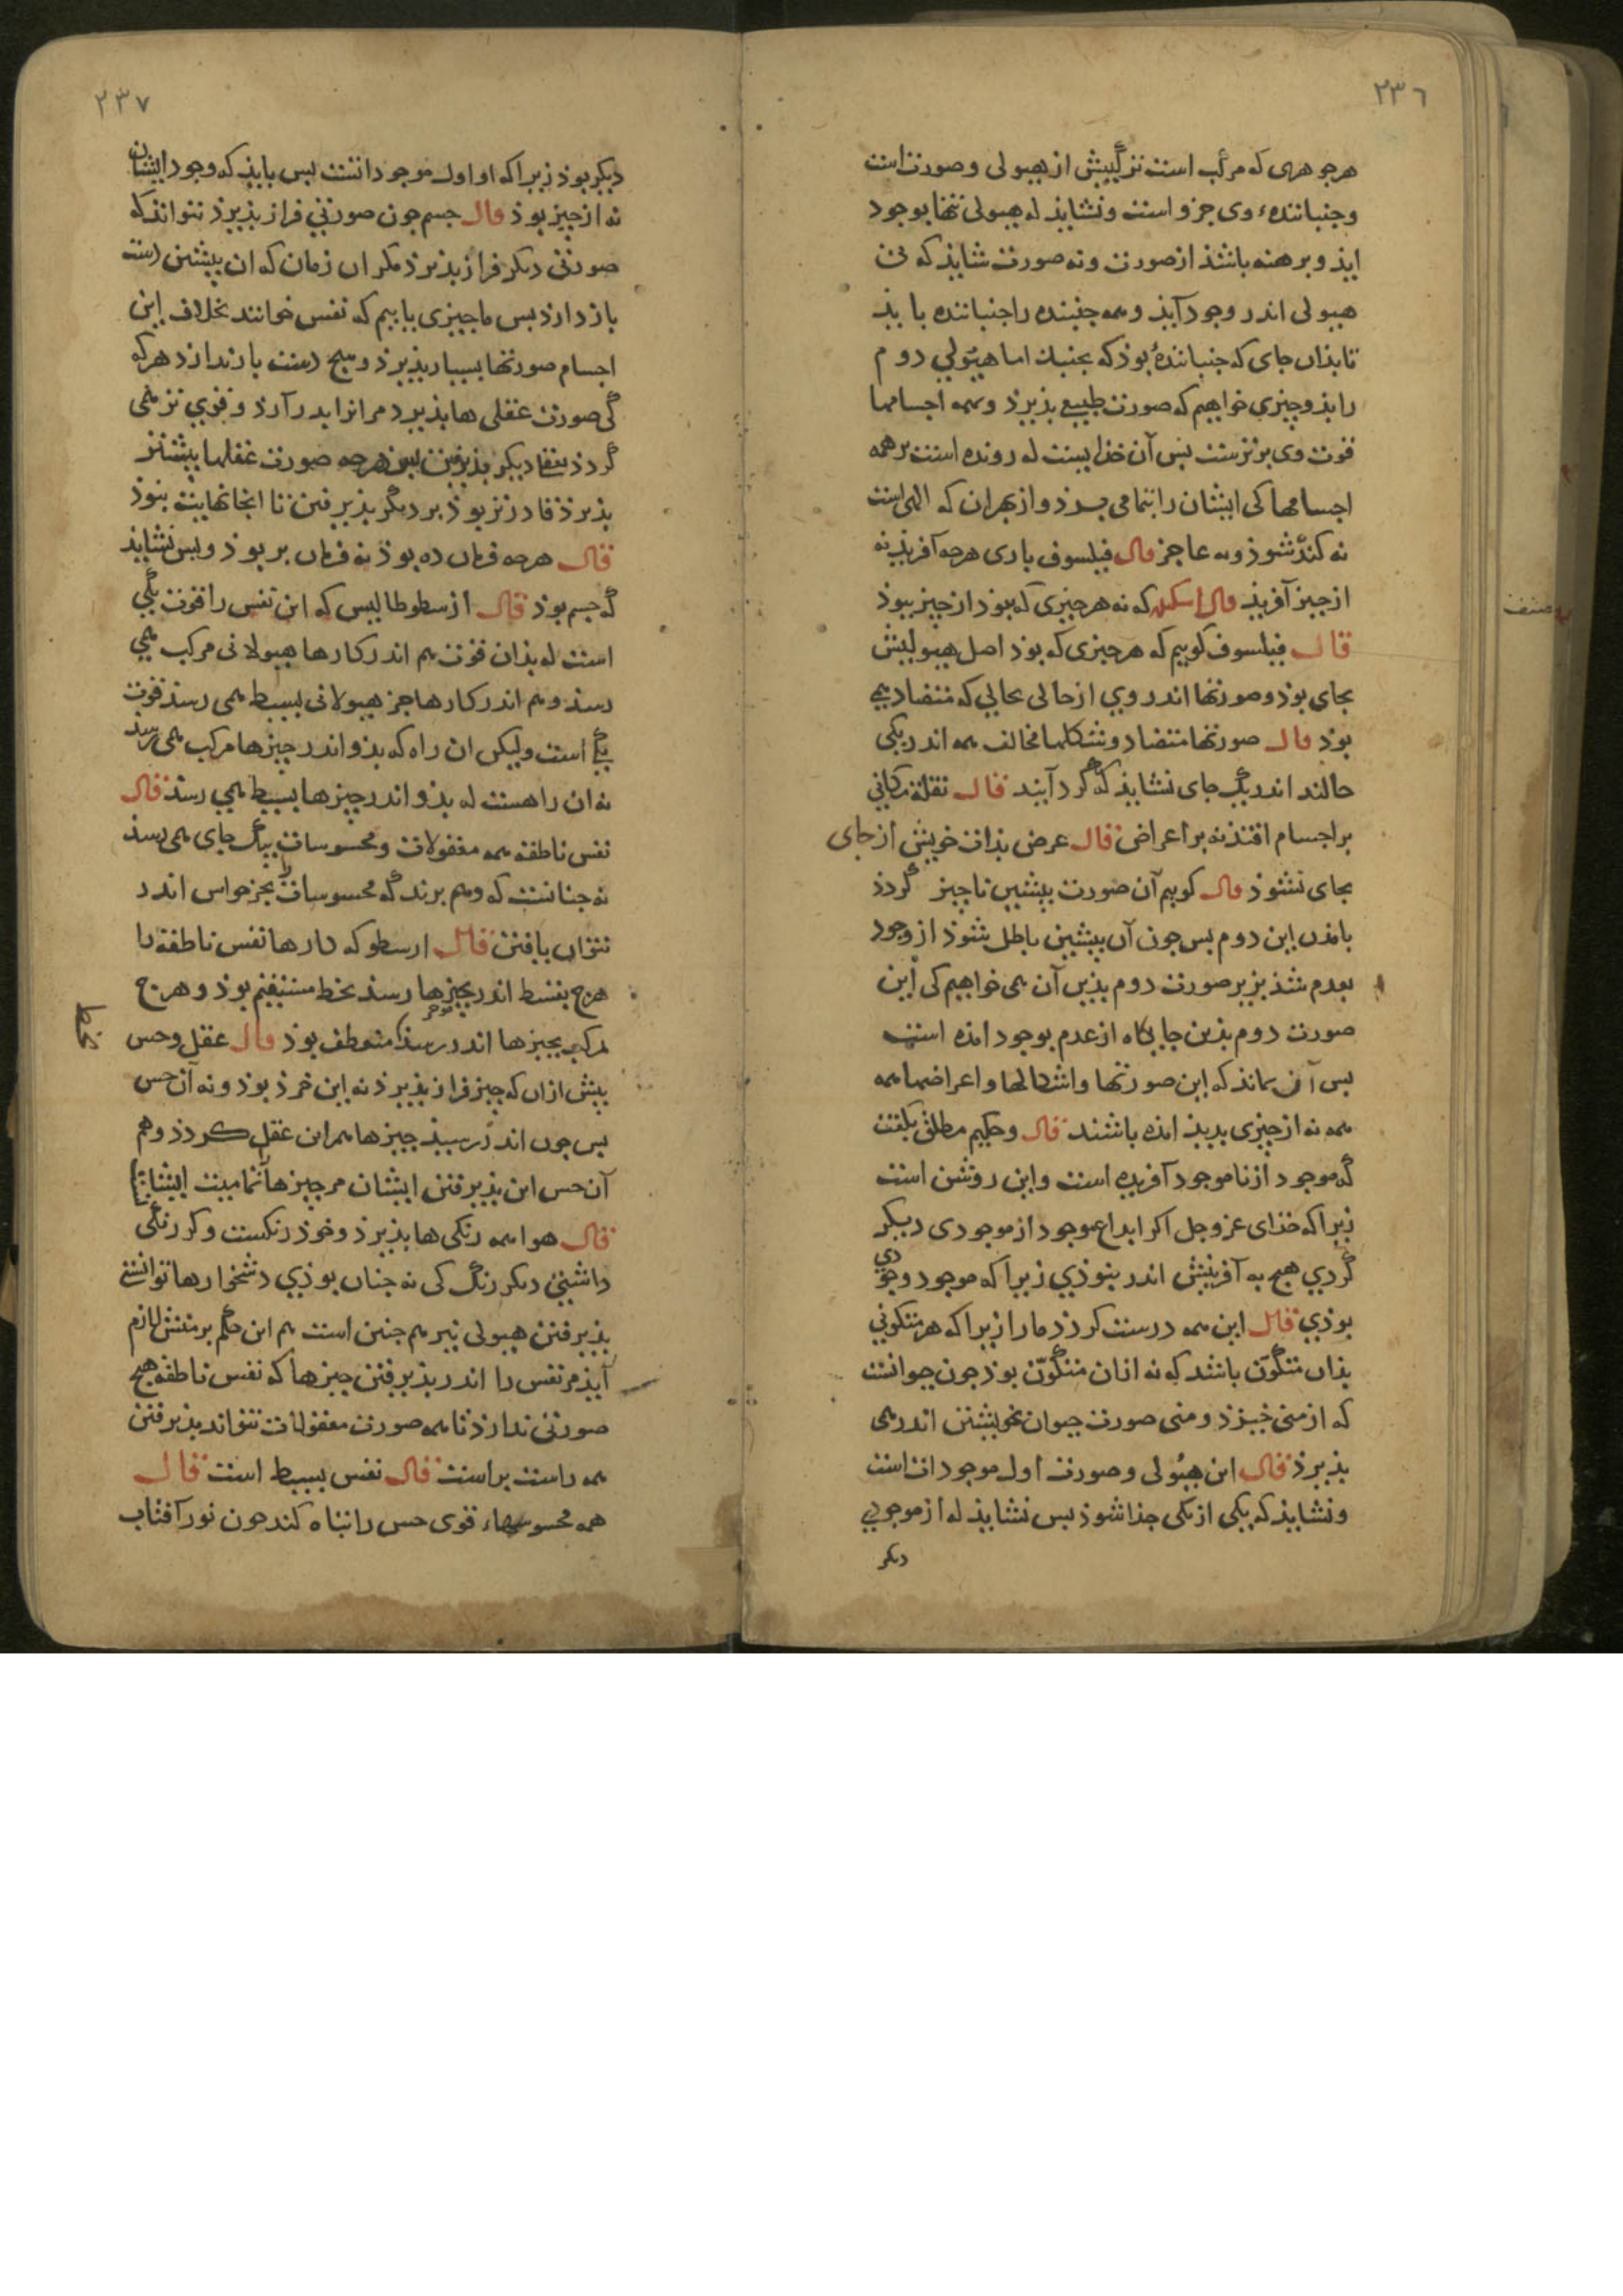 ٢٣٦
هر جوهری که مرکب است ترکیبش از هیولی و صورت است
و جنباننده وی جزو است و نشایذ که هیولی تنها بوجود
ایذ و برهنه باشذ از صورت و نه صورت شایذ که بی
هیولی اندر وجود آیذ و همه جنبنده را جنباننده بایذ
تا بذان جای که جنباننده بوذ که بجنباند اما هیولی دوم
را بذو چیزی خواهیم که صورت طبیع بذیرذ و همه اجسامها
قوت وی برترست بس آن خذاییست که رونده است بر همه
اجسامها کی ایشان را بتمامی برذ و از بهر ان که الهی است
نه کند شوذ و نه عاجز قال فیلسوف باری هرجه آفریذ نه
از چیز آفریذ قال اسکندر که نه هر چیزی که بوذ از چیز ببوذ
قال فیلسوف کوییم که هر چیزی که بوذ اصل هیولیش
بجای بوذ و صورتها اندر وی از حالی بحالی که متضاد همی
بوذ قال صورتها متضاد و شکلها مخالف همه اندر یکی
حالند اندر یک جای نشایذ که گرد آیند قال نقلة مکانی
بر اجسام افتذ نه بر اعراض قال عرض بذات خویش از جای
بجای نشوذ قال کوییم آن صورت بیشین ناچیز گردذ
بامذن این دوم بس جون آن بیشین باطل شوذ از وجود
بعدم شذ بزیر صورت دوم بذین آن می خواهیم کی این
صورت دوم بذین جایکاه از عدم بوجود امذه است
بس آن بماند که این صورتها و اشکالها و اعراضها همه
همه نه از چیزی بدیذ امذه باشند قال و حکیم مطلق بکفت
که موجود از ناموجود آفریده است و این روشن است
زیراکه خذای عز و جل اکر ابداع موجود از موجودی دیکر
گردی هیچ به آفرینش اندر بنوذی زیراکه موجود وجودی
بوذی قال این همه درست کرذ ما را زیراکه هر متکونی
بذان متکون باشد که نه ازان متکون بوذ جون حیوانست
که از منی خیزذ و منی صورت حیوان بخویشتن اندر می
بذیرذ قال این هیولی و صورت اول موجودات است
و نشایذ که یکی از یکی جذا شوذ بس نشایذ که از موجودی
دیکر
٢٣٧
دیکر بوذ زیراکه او اول موجوداتست بس بایذ که وجود ایشان
نه از چیز بوذ قال جسم جون صورتی فراز بذیرذ نتواند که
صورتی دیکر فراز بذیرذ مکر ان زمان که ان بیشین دست
باز دارذ بس ما چیزی یابیم که نفس خوانند بخلاف این
اجسام صورتها بسیار بذیرذ و هیج دست باز ندارذ هرکه
کی صورت عقلی ها بذیرد مر انرا بدر آرذ و قوی تر همی
گردذ بعقل دیکر بذیرفتن بس هرجه صورت عقلها بیشتر
بذیرذ قادرتر بوذ بر دیگر بذیرفتن تا انجا نهایت بنوذ
قال هرجه فرمان ده بوذ نه فرمان بر بوذ و بس نشایذ
که جسم بوذ قال ارسطوطالیس که این نفس را قوت یکی
است که بذان قوت هم اندر کارها هیولانی مرکب همی
رسذ و هم اندر کارها جز هیولانی بسیط همی رسذ قوت
یکی است ولیکن ان راه که بذو اندر چیزها مرکب همی رسذ
نه ان راهست که بذو اندر چیزها بسیط همی رسذ قال
نفس ناطقه همه معقولات و محسوسات بیک جای همی رسذ
نه جنانست که وهم برند که محسوسات را بجز حواس اندر
نتوان یافتن قال ارسطو که کارها نفس ناطقه را
هرج بسیط اندر بچیزها رسذ بخط مستقیم بوذ و هرج
مرکب بچیزها اندر رسذ منعطف بوذ قال عقل و حس
خط
بیش ازان که چیز فراز بذیرذ نه این خرذ بوذ و نه آن حس
بس جون اندر رسیذ چیزها هم این عقل گردذ و هم
آن حس این بذیرفتن ایشان مر چیزها تمامیت ایشانرا
قال هوا همه رنکی ها بذیرذ و خوذ رنکست و کر رنگی
داشتی دیکر رنگ کی نه جنان بوذی دشخوارها توانستی
بذیرفتن هیولی نیز هم جنین است هم این حکم برمنش لازم
آیذ مر نفس را اندر بذیرفتن چیزها که نفس ناطقه هیج
صورتی ندارذ تا همه صورت معقولات تتواند بذیرفتن
همه راست براست قال نفس بسیط است قال
همه محسوسهاء قوی حس را تباه کند جون نور آفتاب